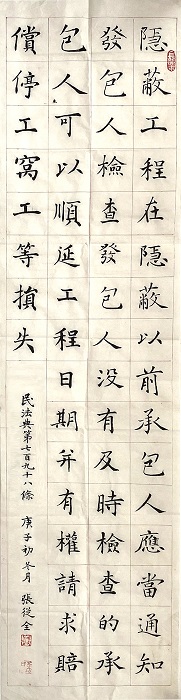 隱蔽工程在隱蔽以前承包人應當通知
發包人檢查發包人没有及時檢查的承
包人可以順延工程日期并有權請求賠
償停工窩工等損失
民法典第七百九十八條 庚子初冬月 張從全